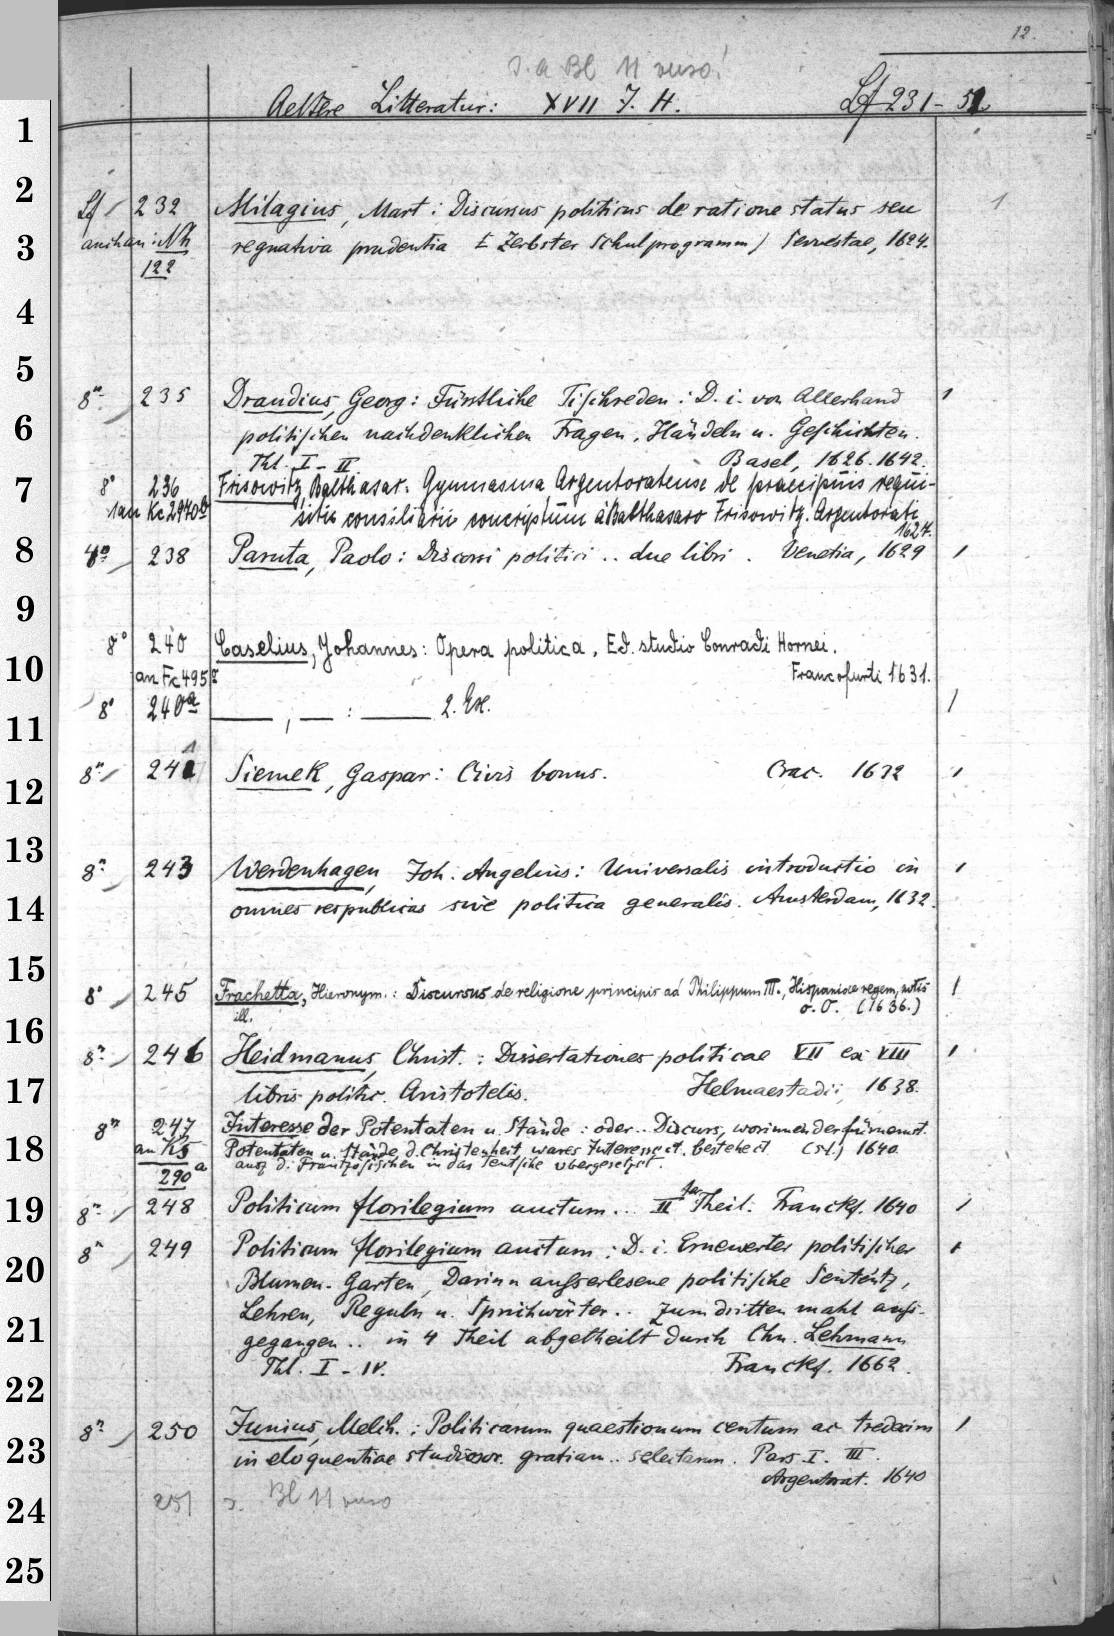 12.
s. a Bl 11 verso!
Aeltere Litteratur: XVII J. H. Lf 231-51
1
2
Lf 232 Milagius, Mart: Discursus politicus de ratione status seu 1
3
anihan: Nh regnativa prudentia [Zerbster Schulprogramm] Servestae, 1624.
122
4
5
8° 235 Draudius, Georg: Fürstliche Tischreden: D. i. von Allerhand 1
6
politischen nachdenklichen Fragen, Händeln u. Geschichten.
Thl. I-II Basel, 1626. 1642.
7
8° 236 Frisowitz, Balthasar: Gymnasma Argentoratense de praecipuis requi-
1 an Kc 2940a sitis consiliarii conscriptum a Balthasaro Frisowitz. Argentorati
1624.
8
4° 238 Paruta, Paolo: Discorsi politici .. due libri. Venetia, 1629 1
9
8° 240 Caselius, Johannes: Opera politica, Ed. studio Conradi Hornei.
10
an Fc 495 Francofurti 1631.
8° 240a —, — : — 2. Ex. 1
11
8° 241 Siemek, Gaspar: Civis bonus. Crac. 1632 1
12
13
8° 243 Werdenhagen, Joh. Angelius: Universalis introductio in 1
14
omnes respublicas sive politica generalis. Amsterdam, 1632.
15
8° 245 Frachetta, Hieronym.: Discursus de religione principis ad Philippum III., Hispaniae regem, notis 1
ill. o. O. (1636.)
16
8° 246 Heidmanus, Christ.: Dissertationes politicae VII ex VIII 1
17
libris politic. Aristotelis. Helmaestadii, 1638.
8° 247 Interesse der Potentaten u. Stände: oder.. Discurs, worinnen der fürnemst.
18
an Ks Potentaten u. Stände d. Christenheit wares Interesse ct. bestehect (s.l.) 1640
290 a ausz d. Frantzösischen in das Teutsche übergesetzet.
19
8° 248 Politicum florilegium auctum... IIter Theil. Franckf. 1640 1
8° 249 Politicum florilegium auctum: D. i. Ernewerter politischer 1
20
Blumen-Garten, Darinn auszerlesene politische Sententz,
Lehren, Reguln u. Sprichwörter.. Zum dritten mahl auss-
21
gegangen.. in 4 Theil abgetheilt durch Chn. Lehmann
Thl. I-IV. Franckf. 1662.
22
8° 250 Junius, Melch.: Politicarum quaestionum centum ac tredecim 1
23
in eloquentiae studiosor. gratiam.. selectarum. Pars I. III.
Argentorat. 1640
24
251 s. Bl 11 verso
25